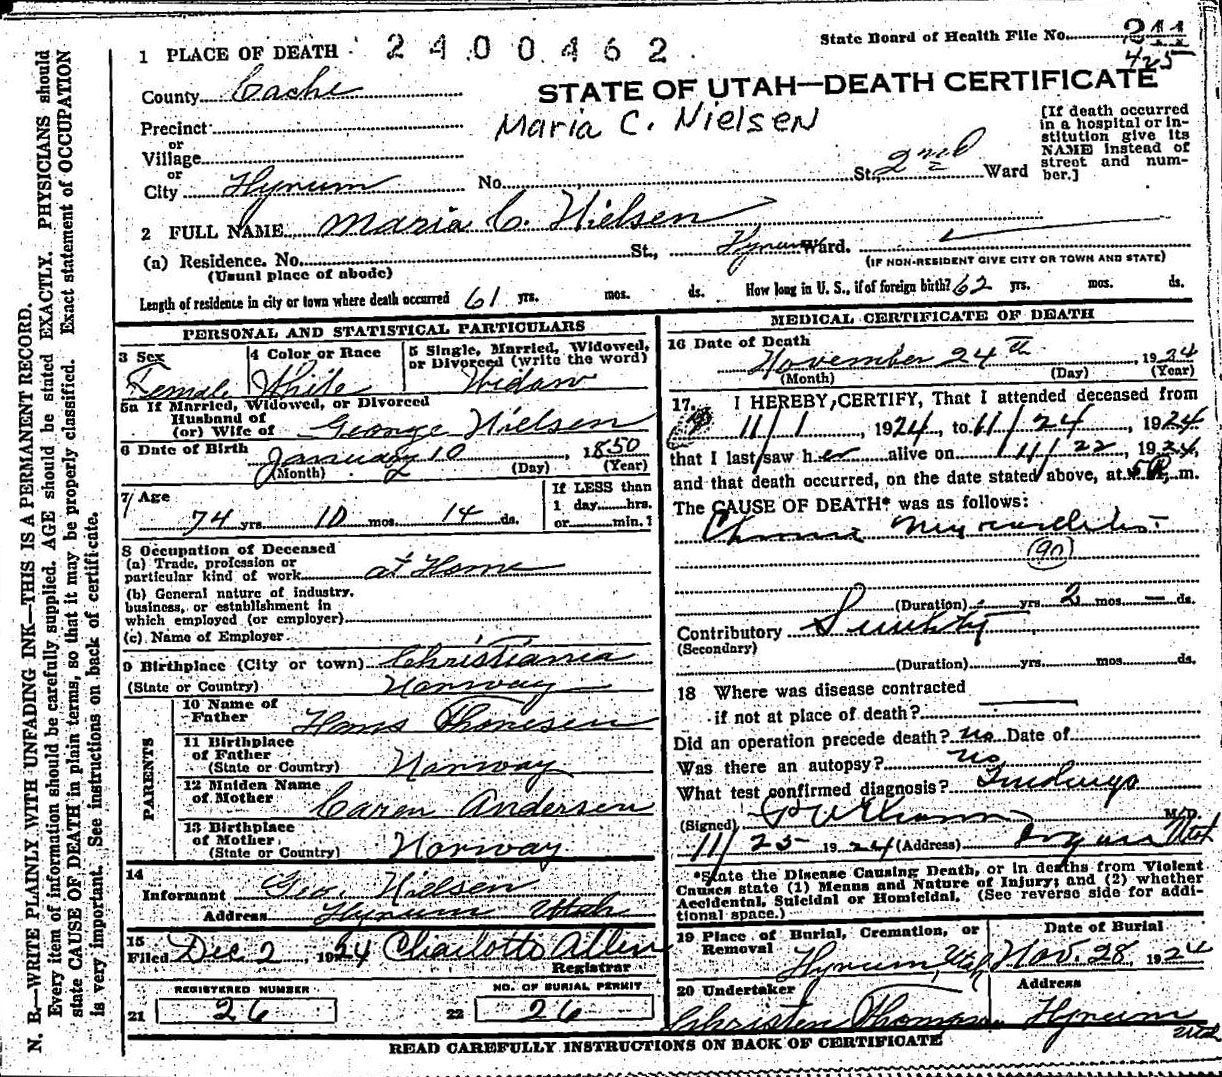 State Board of Health File No. 211
425
1 PLACE OF DEATH 2400462
County Cache
STATE OF UTAH—DEATH CERTIFICATE
Precinct
or
Village
or
City Hyrum No. St., 2nd Ward
Maria C. Nielsen
[If death occurred
in a hospital or in-
stitution give its
NAME instead of
street and num-
ber.]
2 FULL NAME Maria C. Nielsen
(a) Residence. No. St., Hyrum Ward.
(Usual place of abode)
(IF NON-RESIDENT GIVE CITY OR TOWN AND STATE)
Length of residence in city or town where death occurred 61 yrs. mos. ds. How long in U. S., if of foreign birth? 62 yrs. mos. ds.
PERSONAL AND STATISTICAL PARTICULARS
3 Sex
Female
4 Color or Race
White
5 Single, Married, Widowed,
or Divorced (write the word)
Widow
5a If Married, Widowed, or Divorced
Husband of
(or) Wife of George Nielsen
6 Date of Birth January 10, 1850
(Month) (Day) (Year)
7 Age
74 yrs. 10 mos. 14 ds.
If LESS than
1 day hrs.
or min.?
8 Occupation of Deceased
(a) Trade, profession or
particular kind of work at Home
(b) General nature of industry,
business, or establishment in
which employed (or employer)
(c) Name of Employer
9 Birthplace (City or town) Christiania
(State or Country) Norway
PARENTS
10 Name of
Father Hans
11 Birthplace
of Father
(State or Country) Norway
12 Maiden Name
of Mother Caren Andersen
13 Birthplace
of Mother
(State or Country) Norway
14
Informant Geo. Nielsen
Address Hyrum Utah
15
Filed Dec. 2, 1924 Charlotte Allen
Registrar
REGISTERED NUMBER
21 26
NO. OF BURIAL PERMIT
22 26
MEDICAL CERTIFICATE OF DEATH
16 Date of Death
November 24th, 1924
(Month) (Day) (Year)
17. I HEREBY CERTIFY, That I attended deceased from
11/1, 1924, to 11/24, 1924
that I last saw her alive on 11/22, 1924,
and that death occurred, on the date stated above, at m.
The CAUSE OF DEATH* was as follows:
Chronic Myocarditis
(90)
(Duration) yrs. 2 mos. — ds.
Contributory Senility
(Secondary)
(Duration) yrs. mos. ds.
18 Where was disease contracted
if not at place of death?
Did an operation precede death? no Date of
Was there an autopsy? no
What test confirmed diagnosis? Findings
(Signed) M.D.
11/25 1924 (Address) Utah
*State the Disease Causing Death, or in deaths from Violent
Causes state (1) Means and Nature of Injury; and (2) whether
Accidental, Suicidal or Homicidal. (See reverse side for addi-
tional space.)
19 Place of Burial, Cremation, or
Removal
Hyrum, Utah
Date of Burial
Nov. 28, 1924
20 Undertaker
Christen Thompson
Address
Hyrum
Utah
READ CAREFULLY INSTRUCTIONS ON BACK OF CERTIFICATE
N. B.—WRITE PLAINLY, WITH UNFADING INK—THIS IS A PERMANENT RECORD.
Every item of information should be carefully supplied. AGE should be stated EXACTLY. PHYSICIANS should
state CAUSE OF DEATH in plain terms, so that it may be properly classified. Exact statement of OCCUPATION
is very important. See instructions on back of certificate.